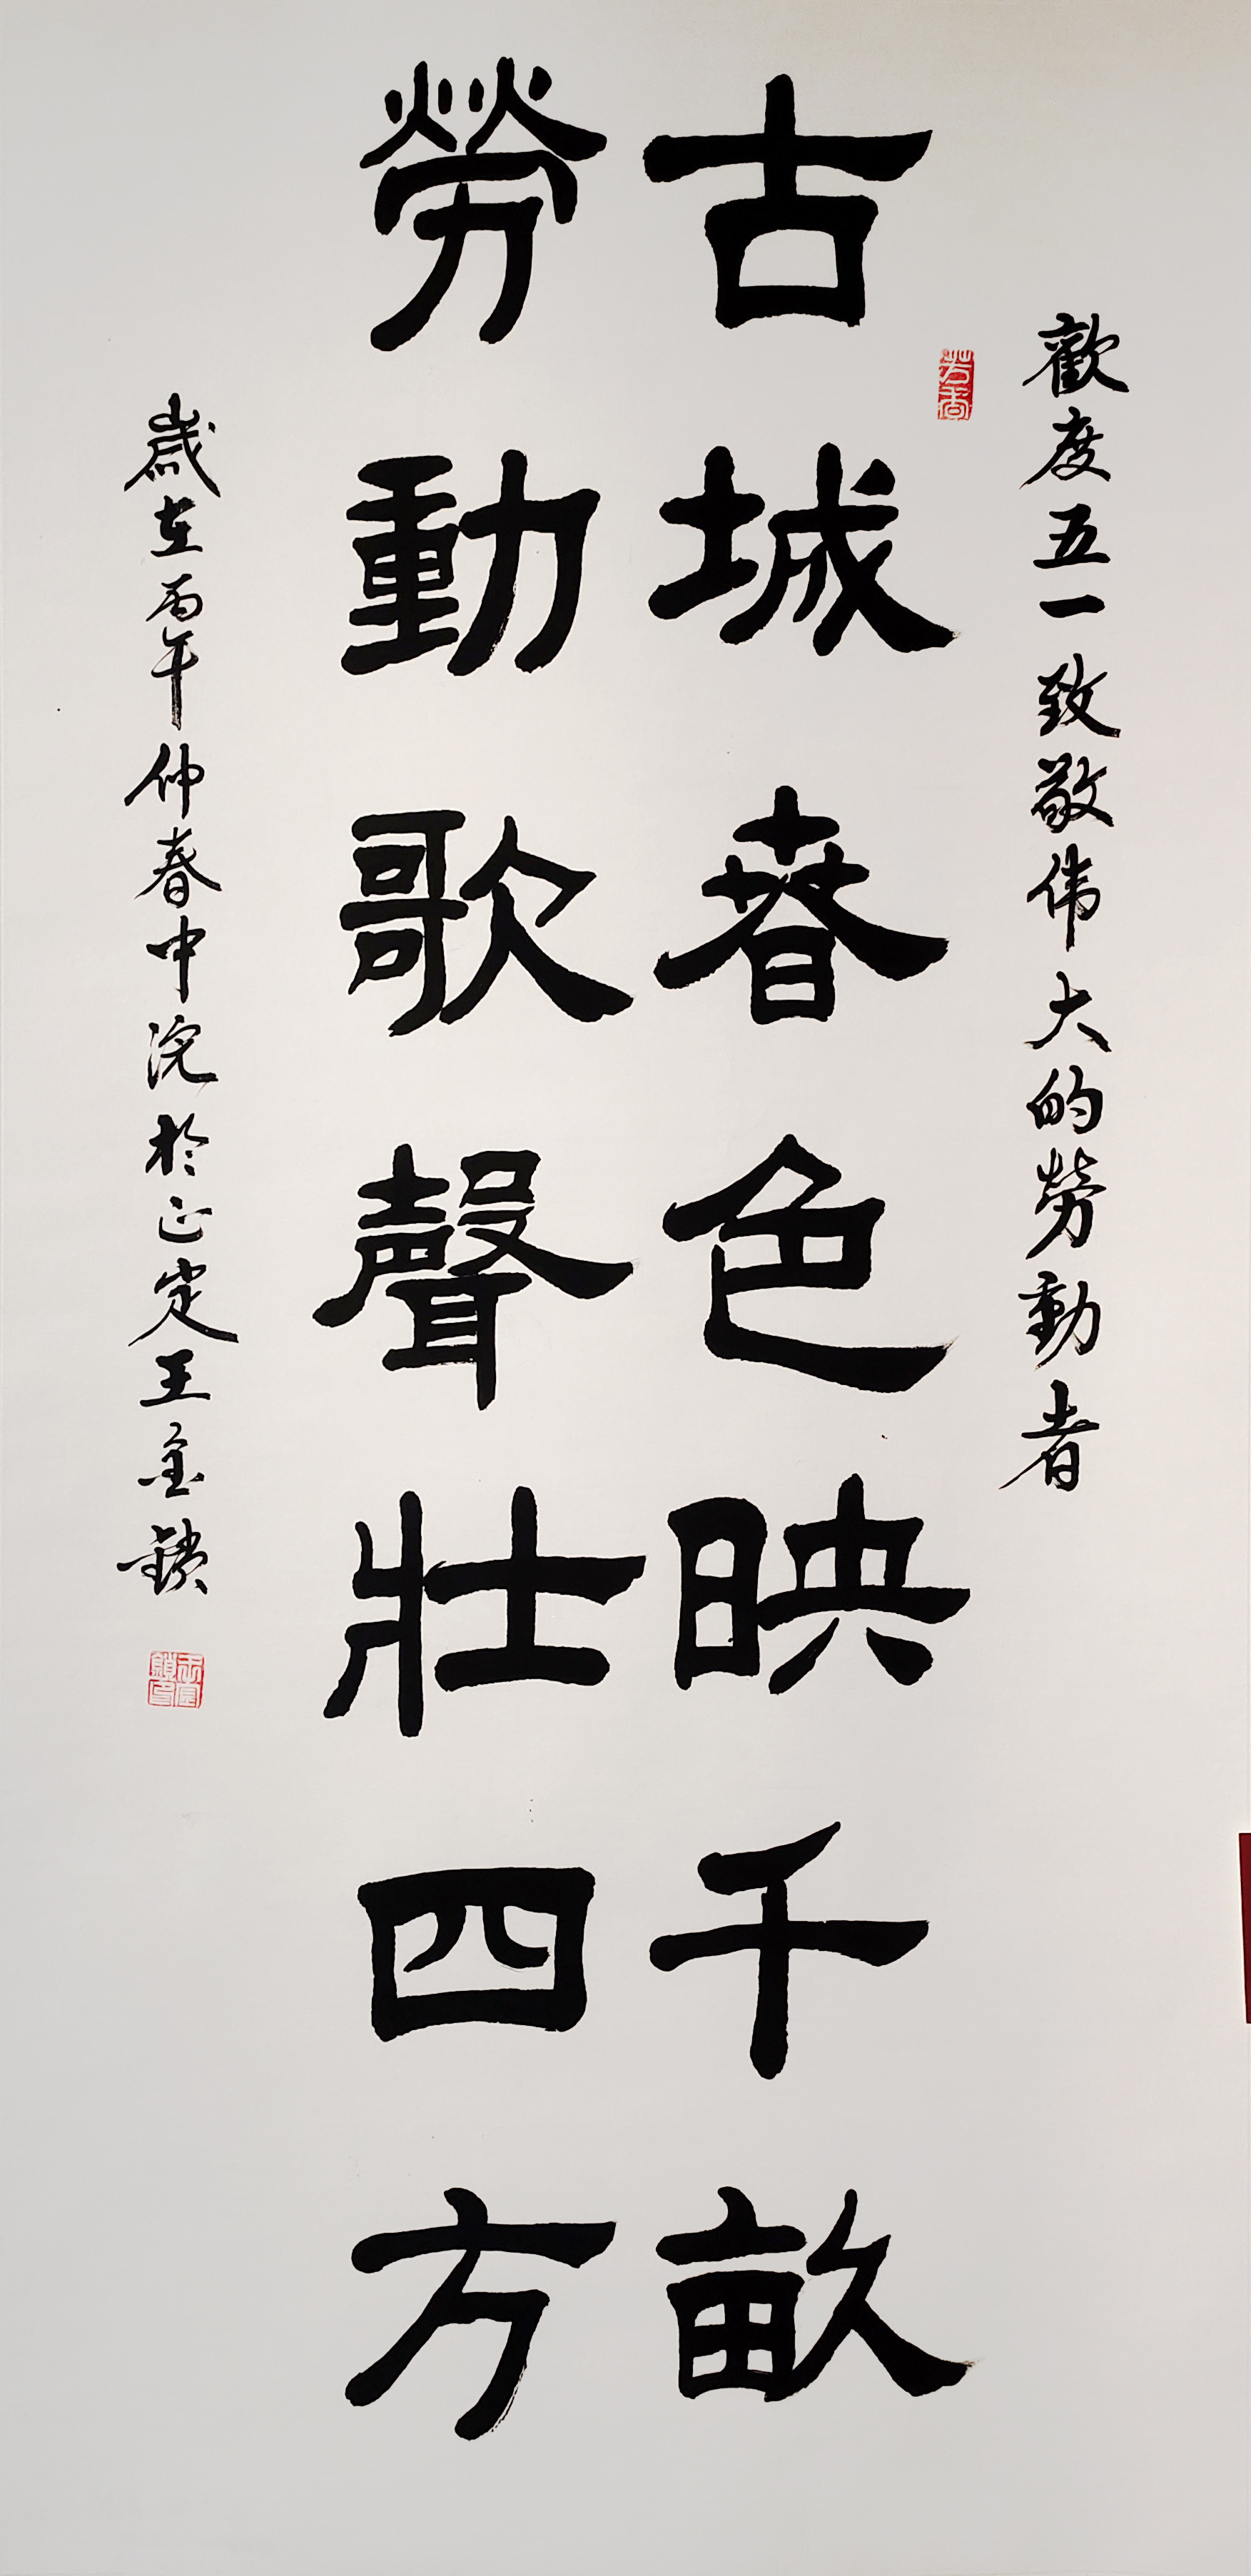 歡度五一致敬伟大的勞動者
古城春色映千畝
勞動歌聲壯四方
歲在丙午仲春中浣於正定王金鎖
芳香